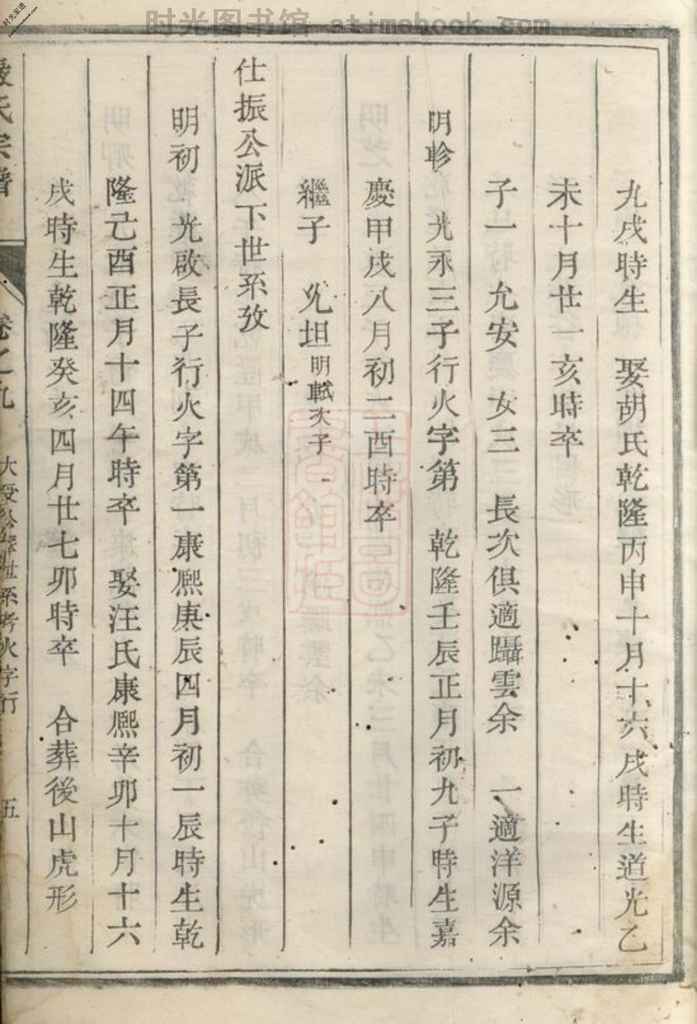 时光图书馆 atimebook.com
九戌時生 娶胡氏乾隆丙申十月十六戌時生道光乙
未十月廿一亥時卒
子一 允安 女三 長次俱適躡雲余 一適洋源余
明聆 光永三子行火字第 乾隆壬辰正月初九子時生嘉
慶甲戌八月初二酉時卒
繼子 允坦明軾次子
仕振公派下世系攷
明初 光啟長子行火字第一康熙庚辰四月初一辰時生乾
隆己酉正月十四午時卒 娶汪氏康熙辛卯十月十六
戌時生乾隆癸亥四月廿七卯時卒 合葬後山虎形
氏宗譜 卷之九 世系考火字行 五